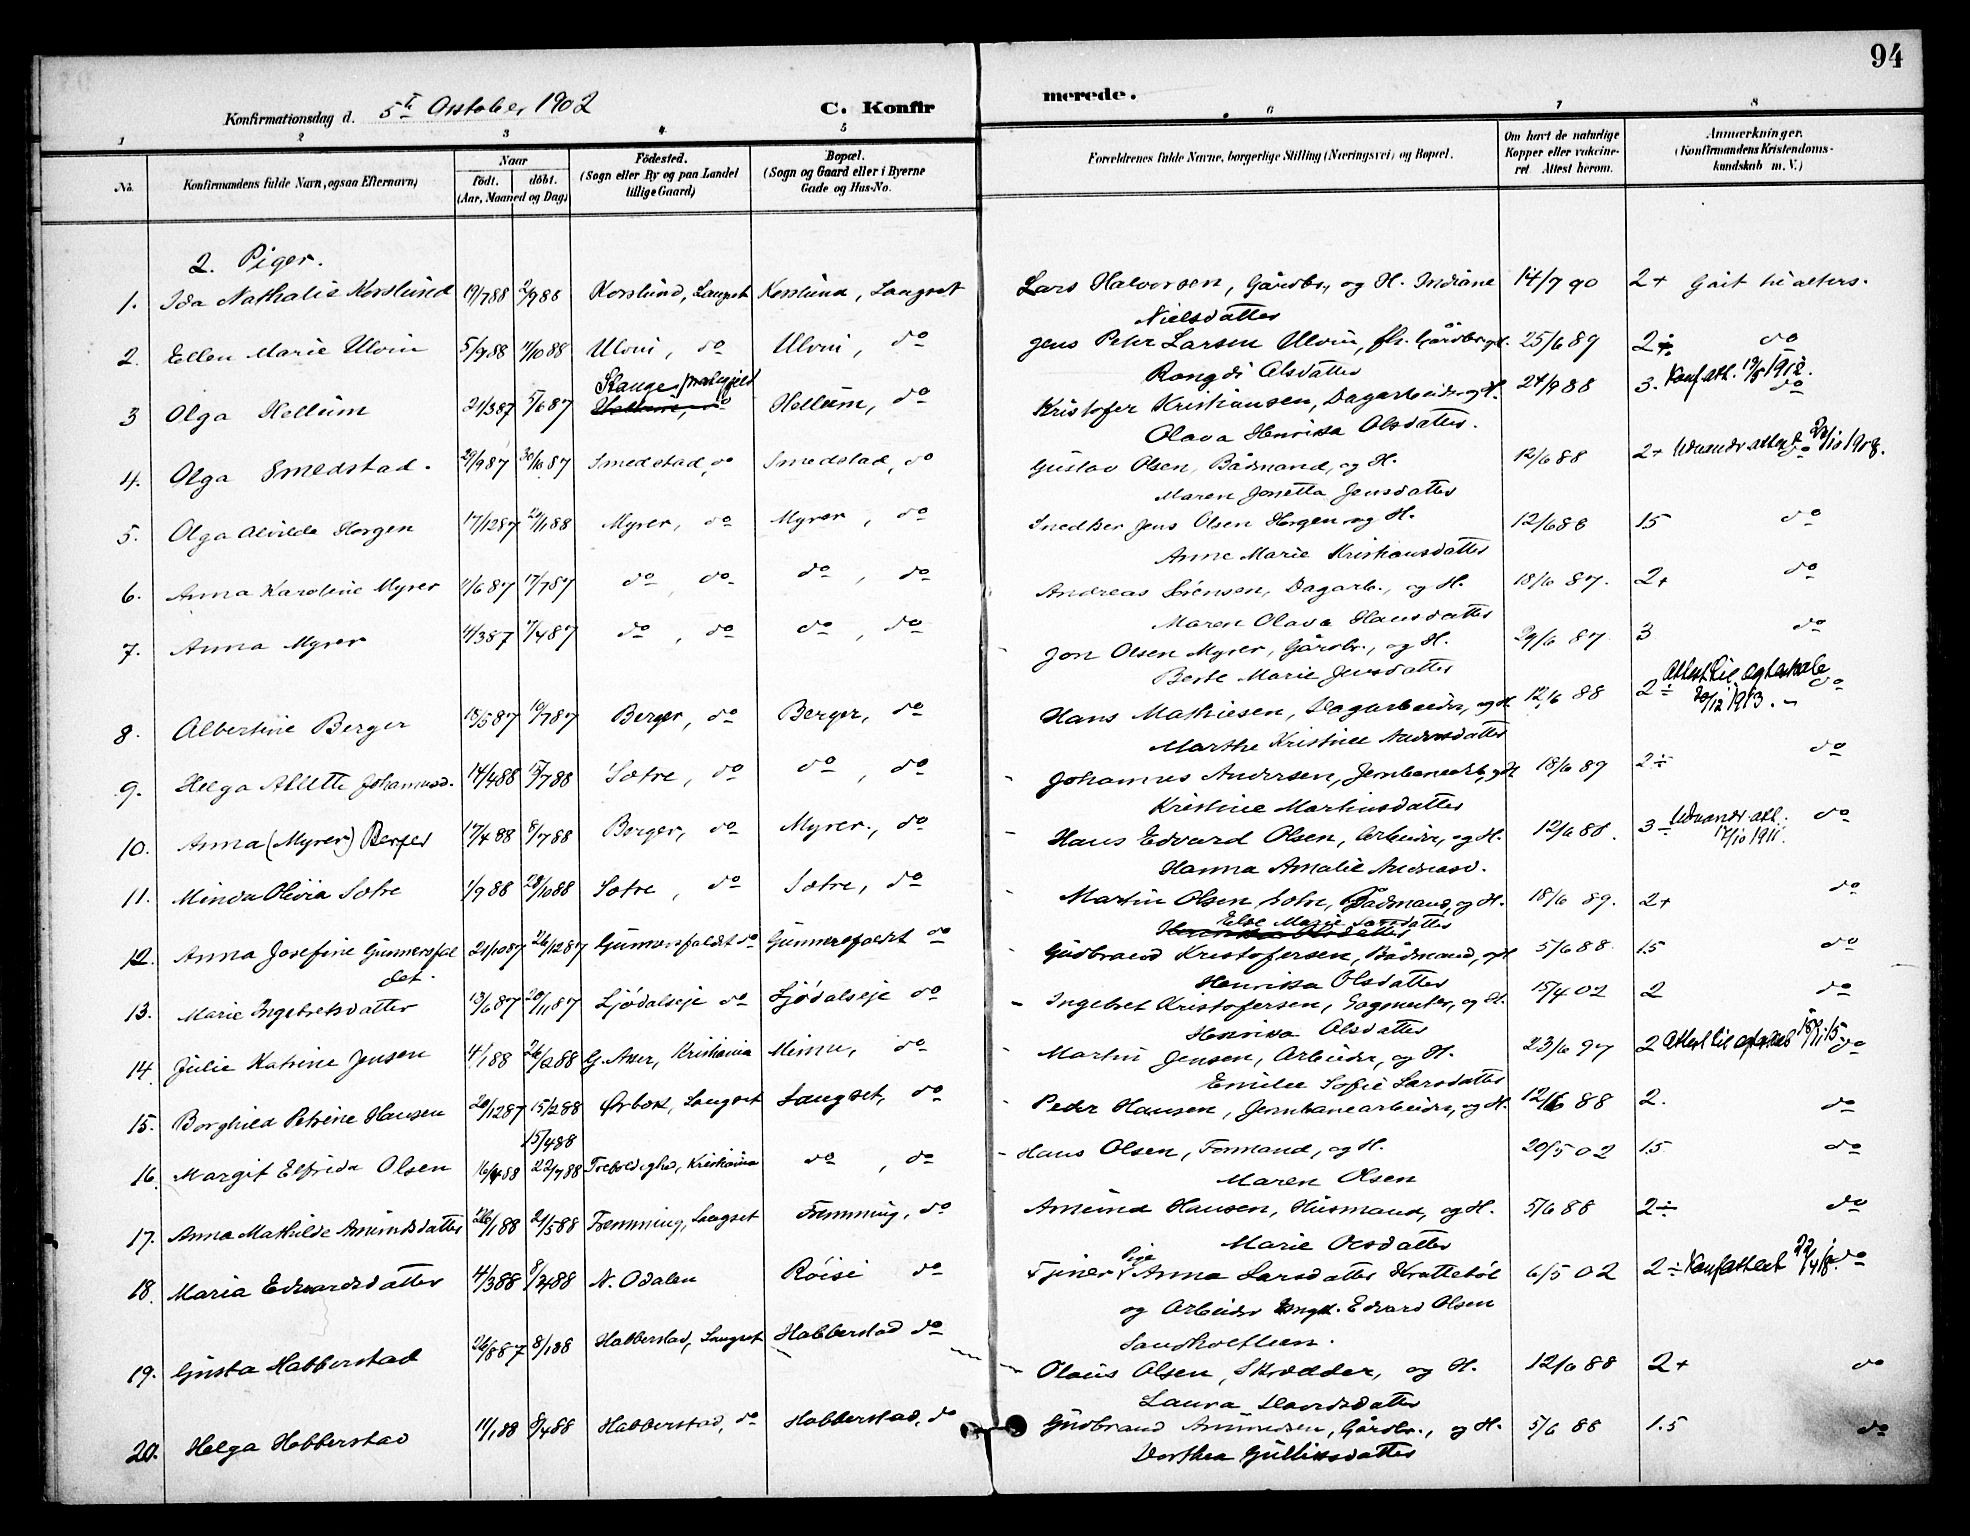 94
Konfirmationsdag d. 5te October 1902 C. Konfirmerede.
1 2 3 4 5 6 7 8
No. Konfirmandens fulde Navn, ogsaa Efternavn) Naar födt. döbt. (Aar, Maaned og Dag) Födested. (Sogn eller By og paa Landet tillige Gaard) Bopæl. (Sogn og Gaard eller i Byerne Gade og Hus-No. Forældrenes fulde Navne, borgerlige Stilling (Næringsvei) og Bopæl. Om havt de naturlige Kopper eller vakcineret Attest herom. Anmærkninger. (Konfirmandens Kristendomskundskab m. V.)
2. Piger.
1. Ida Nathalie Korslund 19/788 2/988 Korslund, Langset Korslund, Langset Lars Halvorsen, Gårdbr, og H. Indiane 14/7 90 2+ Gåit til alters.
Nielsdatter
2. Ellen Marie Ulvin 5/988 11/1088 Ulvin, do Ulvin, do Jens Peter Larsen Ulvin, fh. Gårdbr og H. 25/6 89 2÷ do
Rangdi Olsdatter
3 Olga Hellum 21/387 5/687 Stange præstegjeld Hellum, do Hellum, do Kristofer Kristiansen, Dagarbeider og H. 24/9 88 3. Konf att. 19/8 1912. do
Olava Henrikka Olsdatter.
4. Olga Smedstad. 29/987 30/1087 Smedstad, do Smedstad, do Gustav Olsen, Bådmand, og H. 12/6 88 2+ Udvandr attest do /10 1908.
Maren Jonetta Jensdatter
5. Olga Alvilda Horgen 17/1287 /188 Myrer, do Myrer, do Snedker Jens Olsen Horgen og H. 12/6 88 1.5 do
Anne Marie Kristiansdatter
6. Anna Karoline Myrer 11/687 17/787 do, do do, do Andreas Sörensen, Dagarb., og H. 18/6 87. 2+ do
Maren Olava Hansdatter
7. Anna Myrer 11/387 11/487 do, do do, do Jon Olsen Myrer, Gårdbr., og H. 29/6 87 3 do
Berte Marie Jensdatter
8. Albertine Berger 13/587 10/787 Berger, do Berger, do Hans Mathiesen, Dagarbeider, og H 12/6 88 2÷ Attest til ægteskab do
20/12 1913.
Marthe Kristine Andersdatter
9. Helga Alette Johannesd. 14/488 15/788 Sætre, do do, do Johannes Andersen, Jernbanearb, og H 18/6 89 2÷ do
Kristine Martinusdatter
10. Anna (Myrer) Berger 17/488 8/788 Berger, do Myrer., do Hans Edvard Olsen, Arbeider, og H. 12/6 88. 3÷ Udvandr att. 17/10 1911. do
Hanna Amalie Andreasd.
11. Minda Olivia Sætre 1/988 28/1088 Sætre, do Sætre, do Martin Olsen Sætre, Bådmand, og H. 18/6 89. 2+ do
Else Marie Larsdatter
12. Anna Josefine Gunnersfal 21/1087 26/1287 Gunnersfaldet do Gunnersfaldet do Gudbrand Kristofersen, Bådmand, og H 5/6 88 1.5 do
det. Henrikka Olsdatter
13. Marie Ingebretsdatter 13/687 20/1187 Ljödalseje do Ljödalseje do Ingebret Kristofersen, Sagmester, og H. 15/4 02 2 do
Henrikka Olsdatter
14. Julie Katrine Jensen 4/188 26/288 G. Aker, Kristiania Minne, do Martin Jensen, Arbeider, og H. 23/6 97 2 Attest til ægteskab do
Emilie Sofie Larsdatter
15. Borghild Petrine Hansen 20/1287 15/288 Ørbæk, Langset Langset, do Peder Hansen, Jernbanearbeider, og H. 12/6 88 2. do
15/488
16. Margit Elfrida Olsen 16/488 22/788 Trefoldighed, Kristiania do, do Hans Olsen, Formand, og H. 20/5 02 1.5 do
Maren Olsen
17. Anna Mathilde Amundsdatter 26/188 21/588 Fremming, Langset Fremming, do Amund Hansen, Husmand, og H. 5/6 88 2÷ do
Marie Olsdatter
18. Maria Edvardsdatter 4/388 8/488 N. Odalen Röisi do Tjener Pige Anna Larsdatter Kratteböl 6/5 02 2÷ Konfattest 22/4 18. do
og Arbeider Ungk. Edvard Olsen
Sandholteien.
19. Gusta Habberstad 26/887 8/188 Habberstad, Langset Habberstad do Olaus Olsen, Skrædder, og H. 12/6 88 2+ do
Laura Haardsdatter
20. Helga Habberstad 11/188 8/488 Habberstad, do Habberstad, do Gudbrand Amundsen, Gårdbr., og H. 5/6 88 1.5 do
Dorthea Gulliksdatter